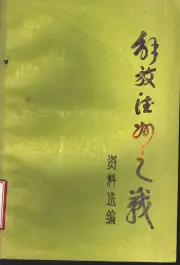 解放德州之战
资料选编